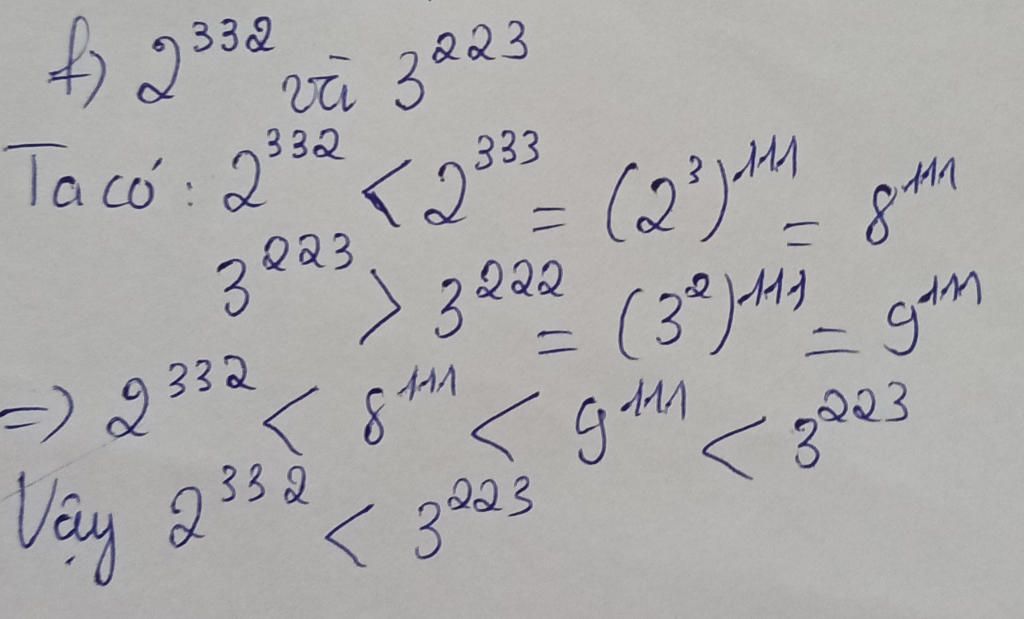 f) 2^332 và 3^223
Ta có: 2^332 < 2^333 = (2^3)^111 = 8^111
3^223 > 3^222 = (3^2)^111 = 9^111
=> 2^332 < 8^111 < 9^111 < 3^223
Vậy 2^332 < 3^223